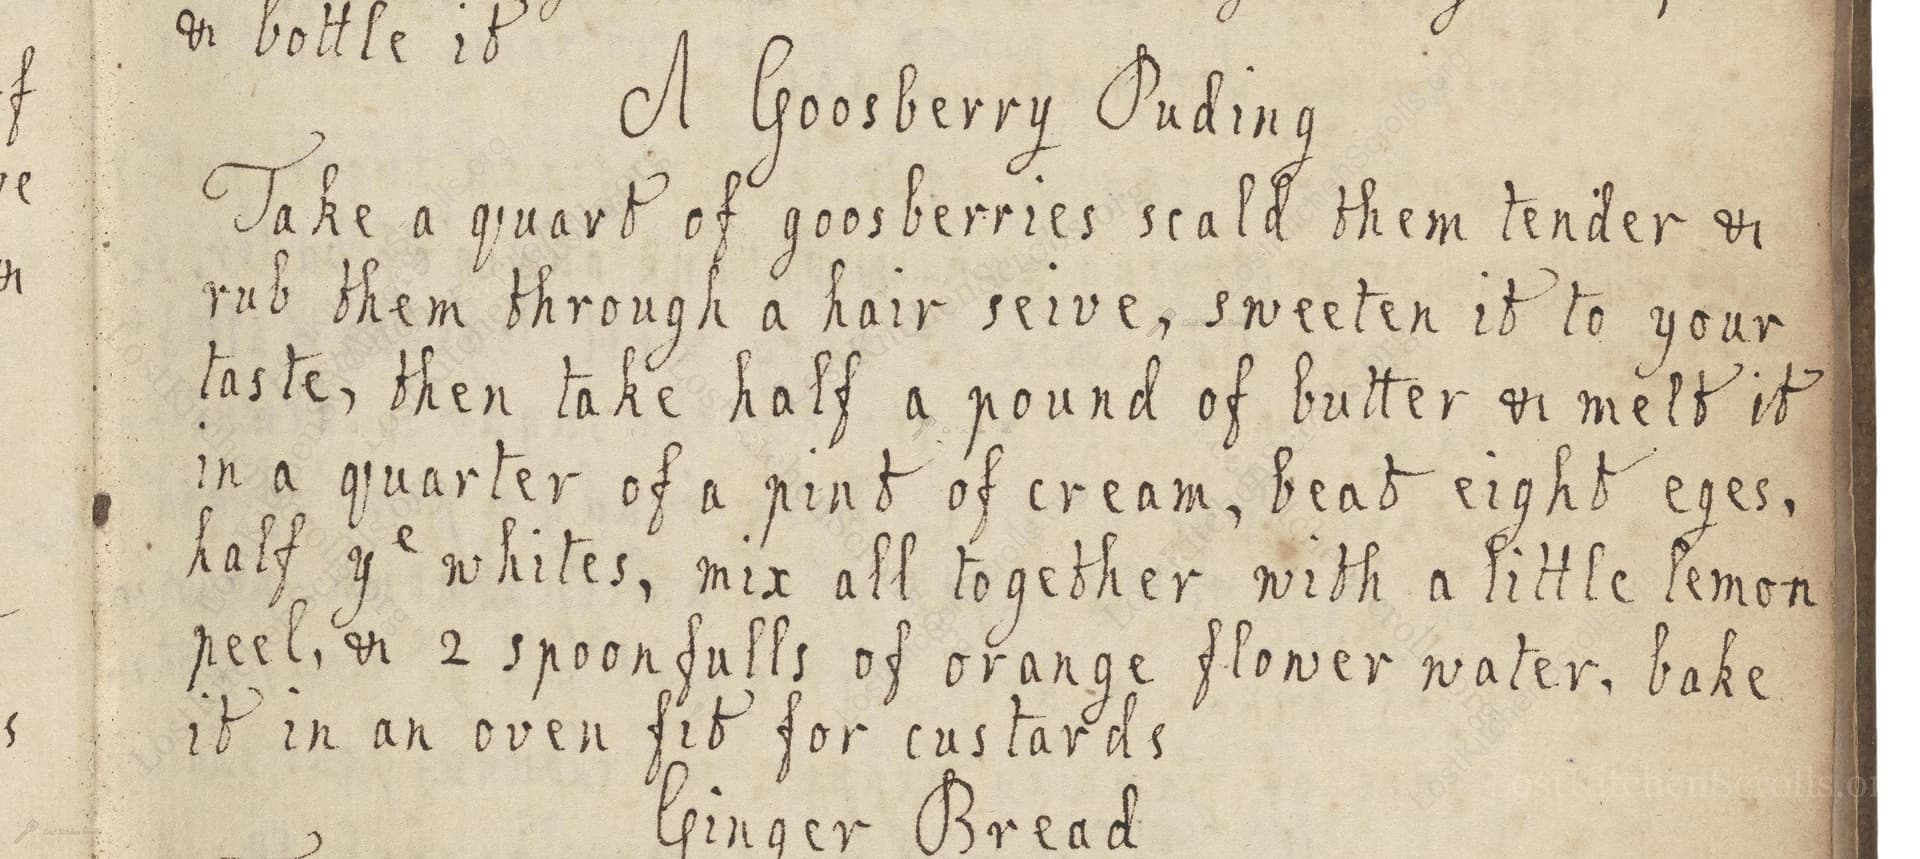 & bottle it
A Goosberry Puding
Take a quart of goosberries scald them tender &
rub them through a hair seive, sweeten it to your
taste, then take half a pound of butter & melt it
in a quarter of a pint of cream, beat eight eges,
half yᵉ whites, mix all together with a little lemon
peel, & 2 spoonfulls of orange flower water, bake
it in an oven fit for custards
Ginger Bread